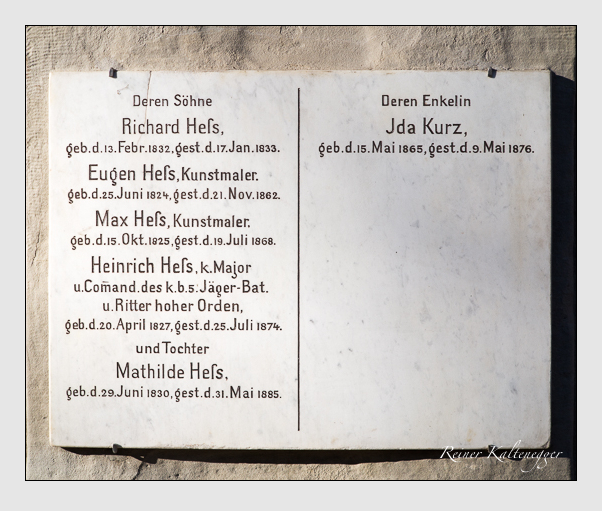 Deren Söhne
Richard Heſs,
geb.d.13.Febr.1832,gest.d.17.Jan.1833.
Eugen Heſs, Kunstmaler.
geb.d.25.Juni 1824, gest.d.21.Nov.1862.
Max Heſs, Kunstmaler.
geb.d.15.Okt.1825,gest.d.19.Juli 1868.
Heinrich Heſs, k.Major
u.Com̄and.des k.b.5.Jäger-Bat.
u.Ritter hoher Orden,
geb.d.20.April 1827,gest.d.25.Juli 1874.
und Tochter
Mathilde Heſs,
geb.d.29.Juni 1830, gest.d.31.Mai 1885.
Deren Enkelin
Jda Kurz,
geb.d.15.Mai 1865,gest.d.9.Mai 1876.
Reiner Kaltenegger